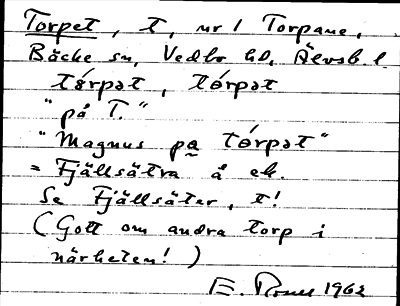 Torpet, t, nr 1 Torpane,
Bäcke sn, Vedbo hd, Älvsb. l.
tórpət, tórpət
"på T."
"Magnus pa tórpət"
= Fjällsätra å ek.
Se Fjällsäter, t!
(Gott om andra torp i
närheten!)
E. 1962